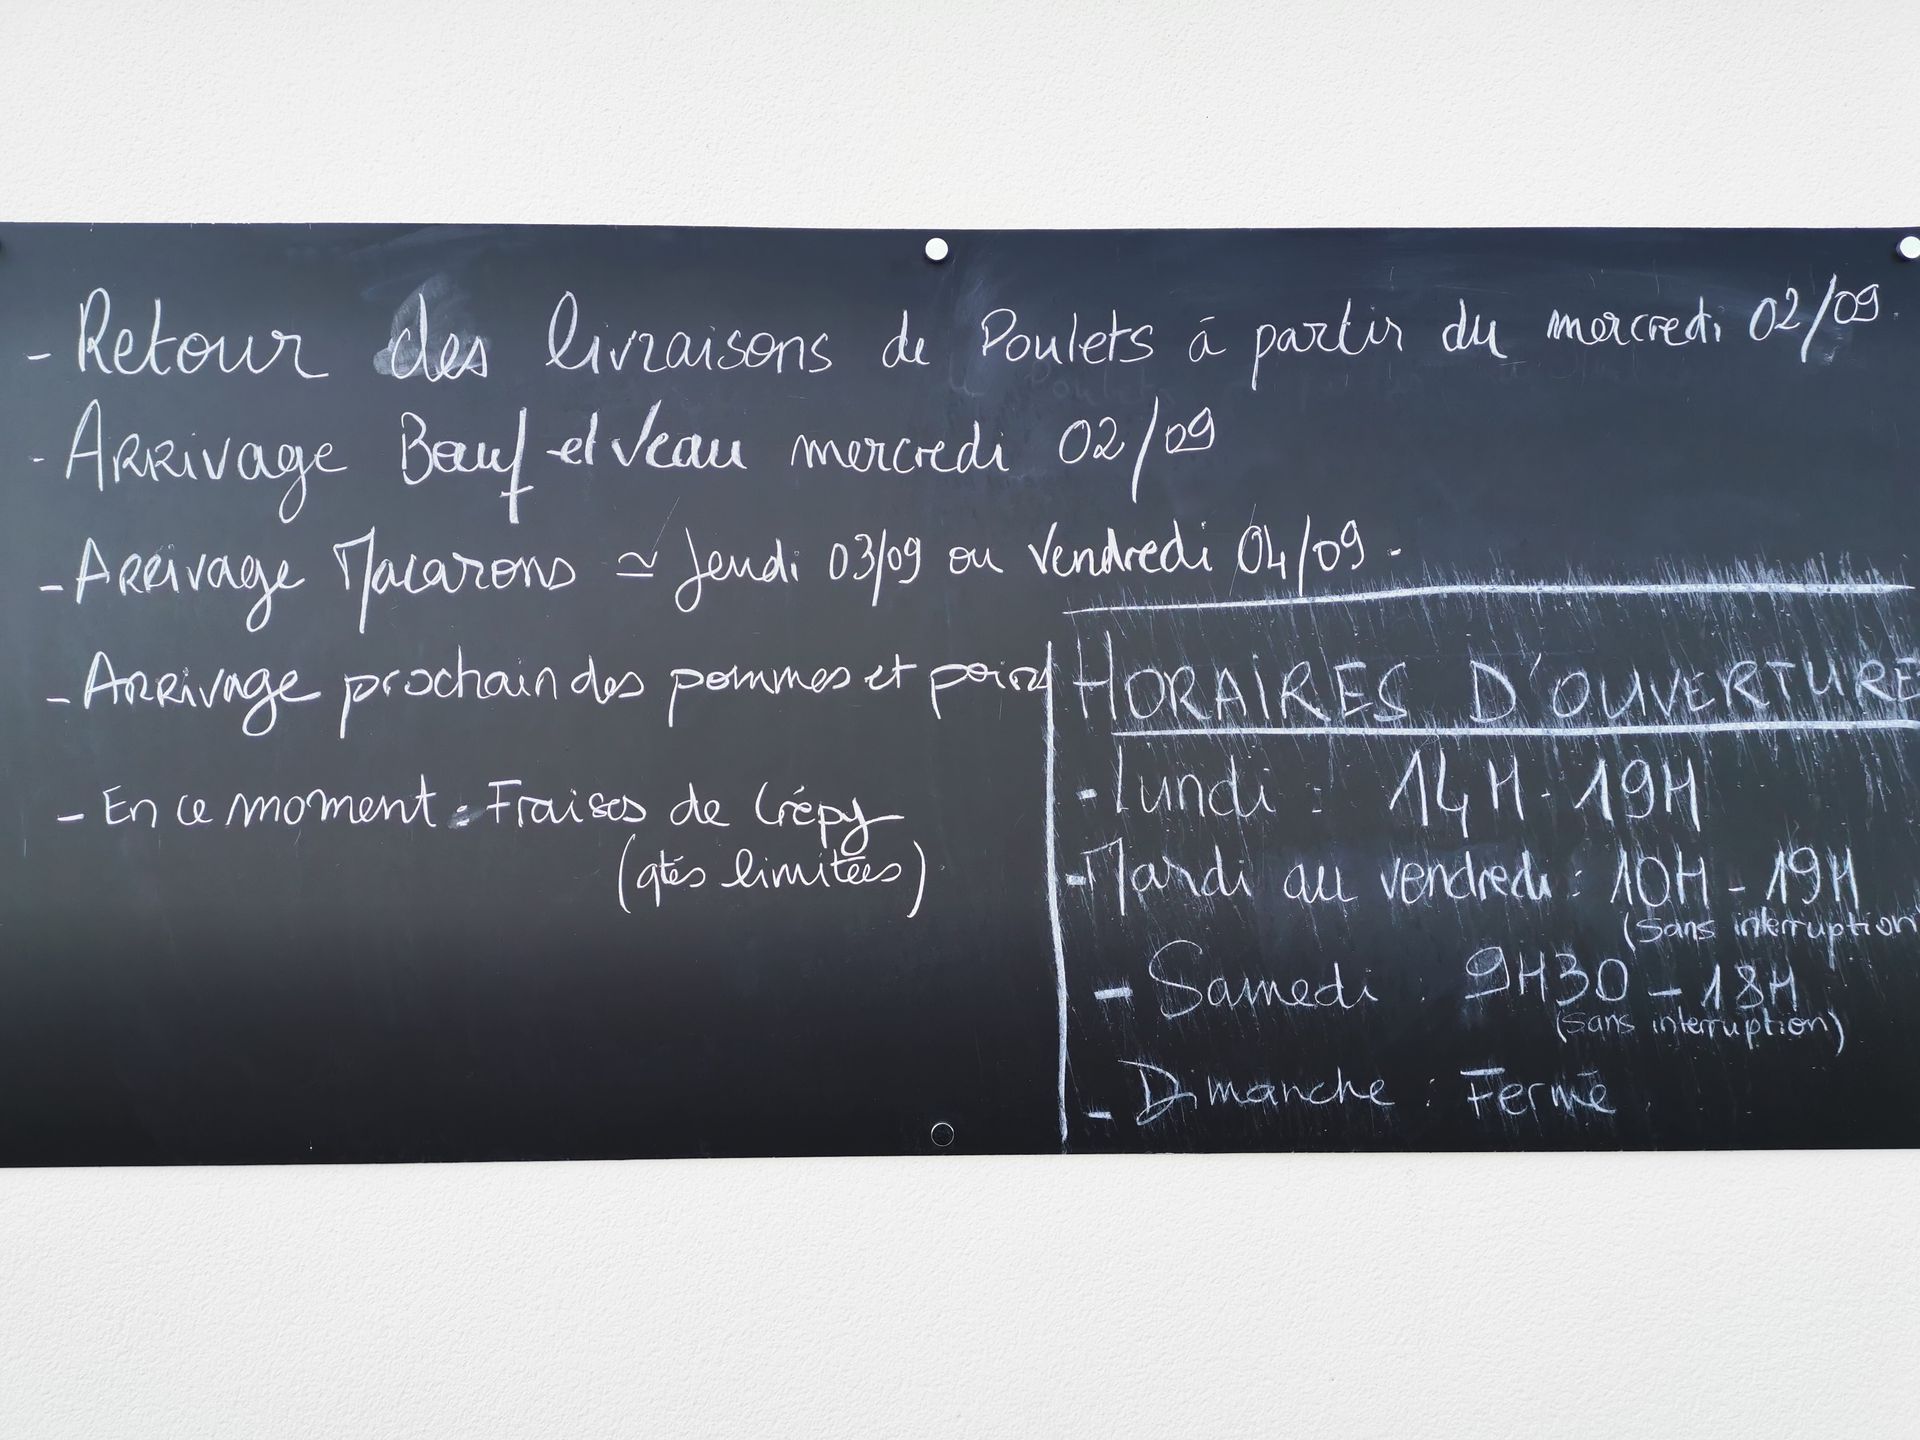 - Retour des livraisons de Poulets à partir du mercredi 02/09.
- Arrivage Bœuf et Veau mercredi 02/09
- Arrivage Macarons ≃ Jeudi 03/09 ou Vendredi 04/09.
- Arrivage prochain des pommes et poires
- En ce moment : Fraises de Crépy
(qtés limitées)
HORAIRES D'OUVERTURE
- Lundi : 14H - 19H
- Mardi au vendredi : 10H - 19H
(Sans interruption)
- Samedi : 9H30 - 18H
(Sans interruption)
- Dimanche : Fermé